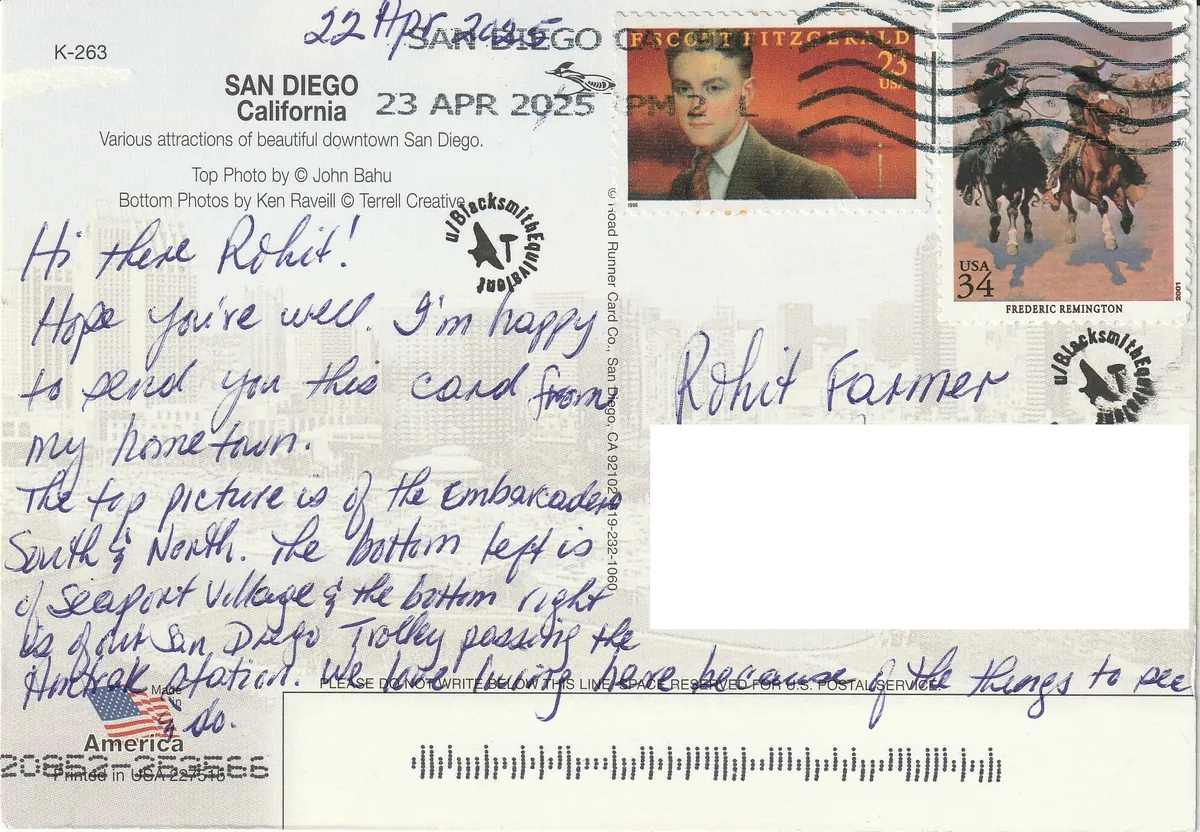 22 Apr 2025
SAN DIEGO CA
23 APR 2025 PM 2 L
K-263
SAN DIEGO
California
Various attractions of beautiful downtown San Diego.
Top Photo by © John Bahu
Bottom Photos by Ken Raveill © Terrell Creative
u/BlacksmithEquivalent
Hi there Rohit!
Hope you're well. I'm happy
to send you this card from
my hometown.
The top picture is of the Embarcadero
South & North. The bottom left is
of Seaport Village & the bottom right
is of our San Diego Trolley passing the
Amtrak station. We love living here because of the things to see
& do.
Made in
America
Printed in USA 227516
© Road Runner Card Co., San Diego, CA 92102 619-232-1060
F. SCOTT FITZGERALD
23
USA
1996
USA
34
2001
FREDERIC REMINGTON
u/BlacksmithEquivalent
Rohit Farmer
PLEASE DO NOT WRITE BELOW THIS LINE. SPACE RESERVED FOR U.S. POSTAL SERVICE.